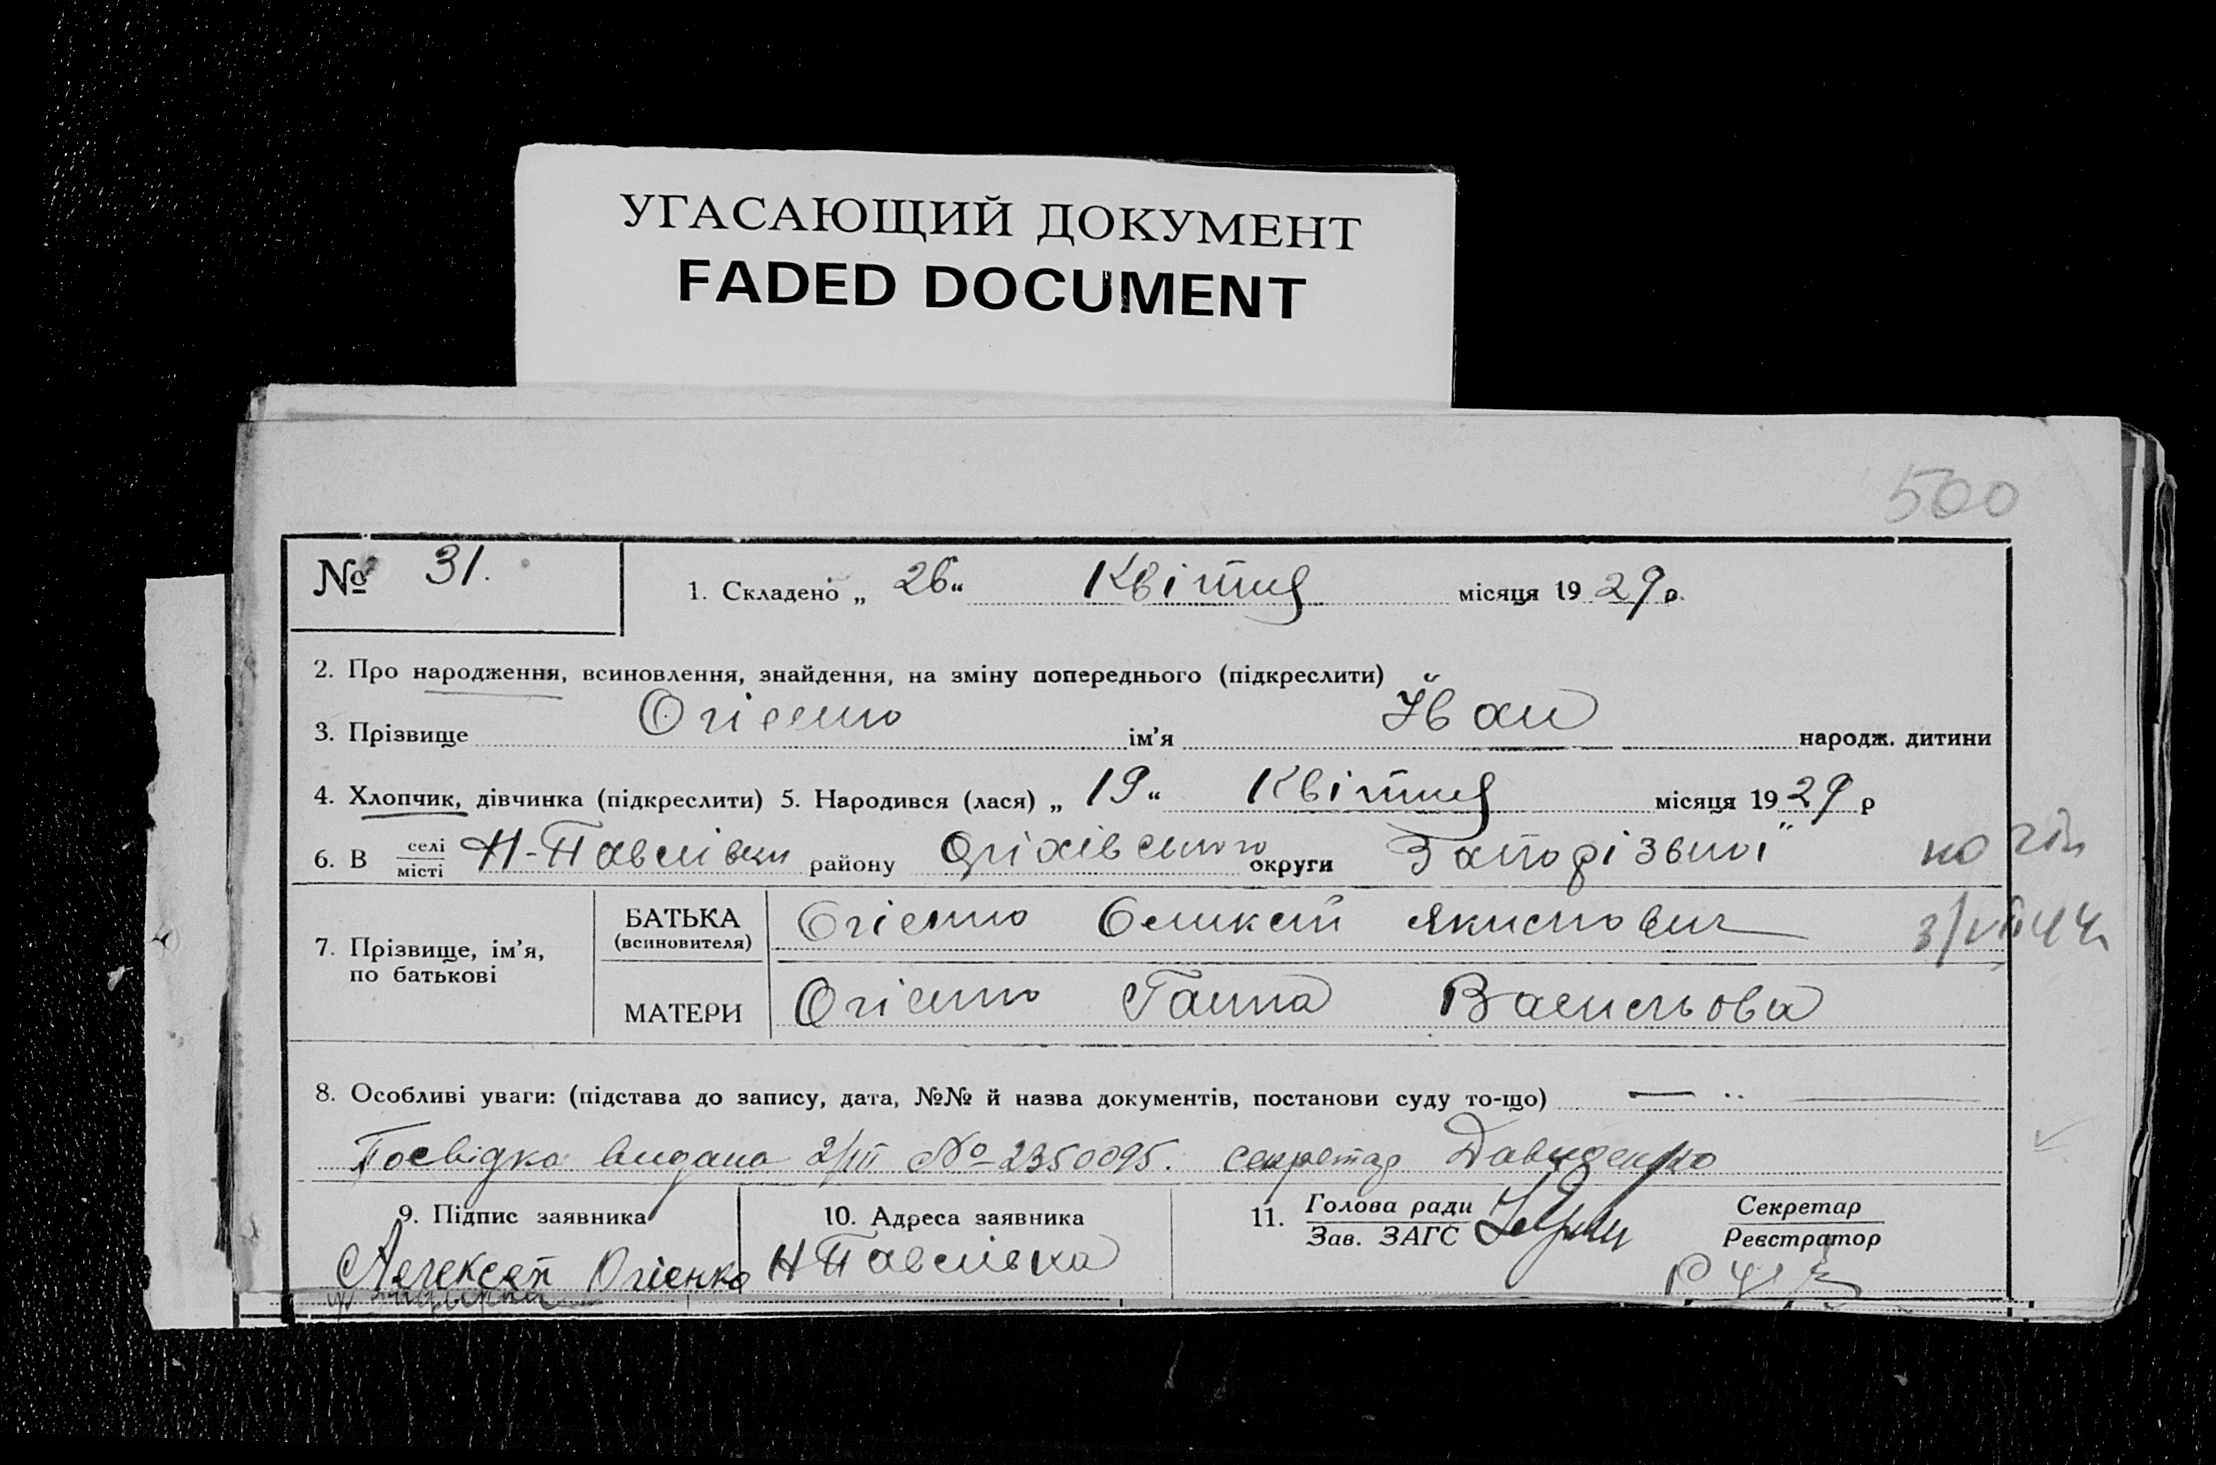 УГАСАЮЩИЙ ДОКУМЕНТ
FADED DOCUMENT
500
№ 31.
1. Складено „ 26 “ Квітня місяця 19 29 р.
2. Про народження, всиновлення, знайдення, на зміну попереднього (підкреслити)
3. Прізвище Огієнко ім’я Іван народж. дитини
4. Хлопчик, дівчинка (підкреслити) 5. Народився (лася) „ 19 “ Квітня місяця 19 29 р
6. В селі місті Н-Павлівки району Оріхівського округи Запорізької
7. Прізвище, ім’я, по батькові
БАТЬКА (всиновителя) Огієнко Олексій
МАТЕРИ Огієнко Ганна Васильова
8. Особливі уваги: (підстава до запису, дата, №№ й назва документів, постанови суду то-що)
Посвідка видана 2/III № 2350095. секретар Давиденко
9. Підпис заявника 10. Адреса заявника 11. Голова ради Зав. ЗАГС Секретар Реєстратор
Алексей Огієнко Н Павлівка